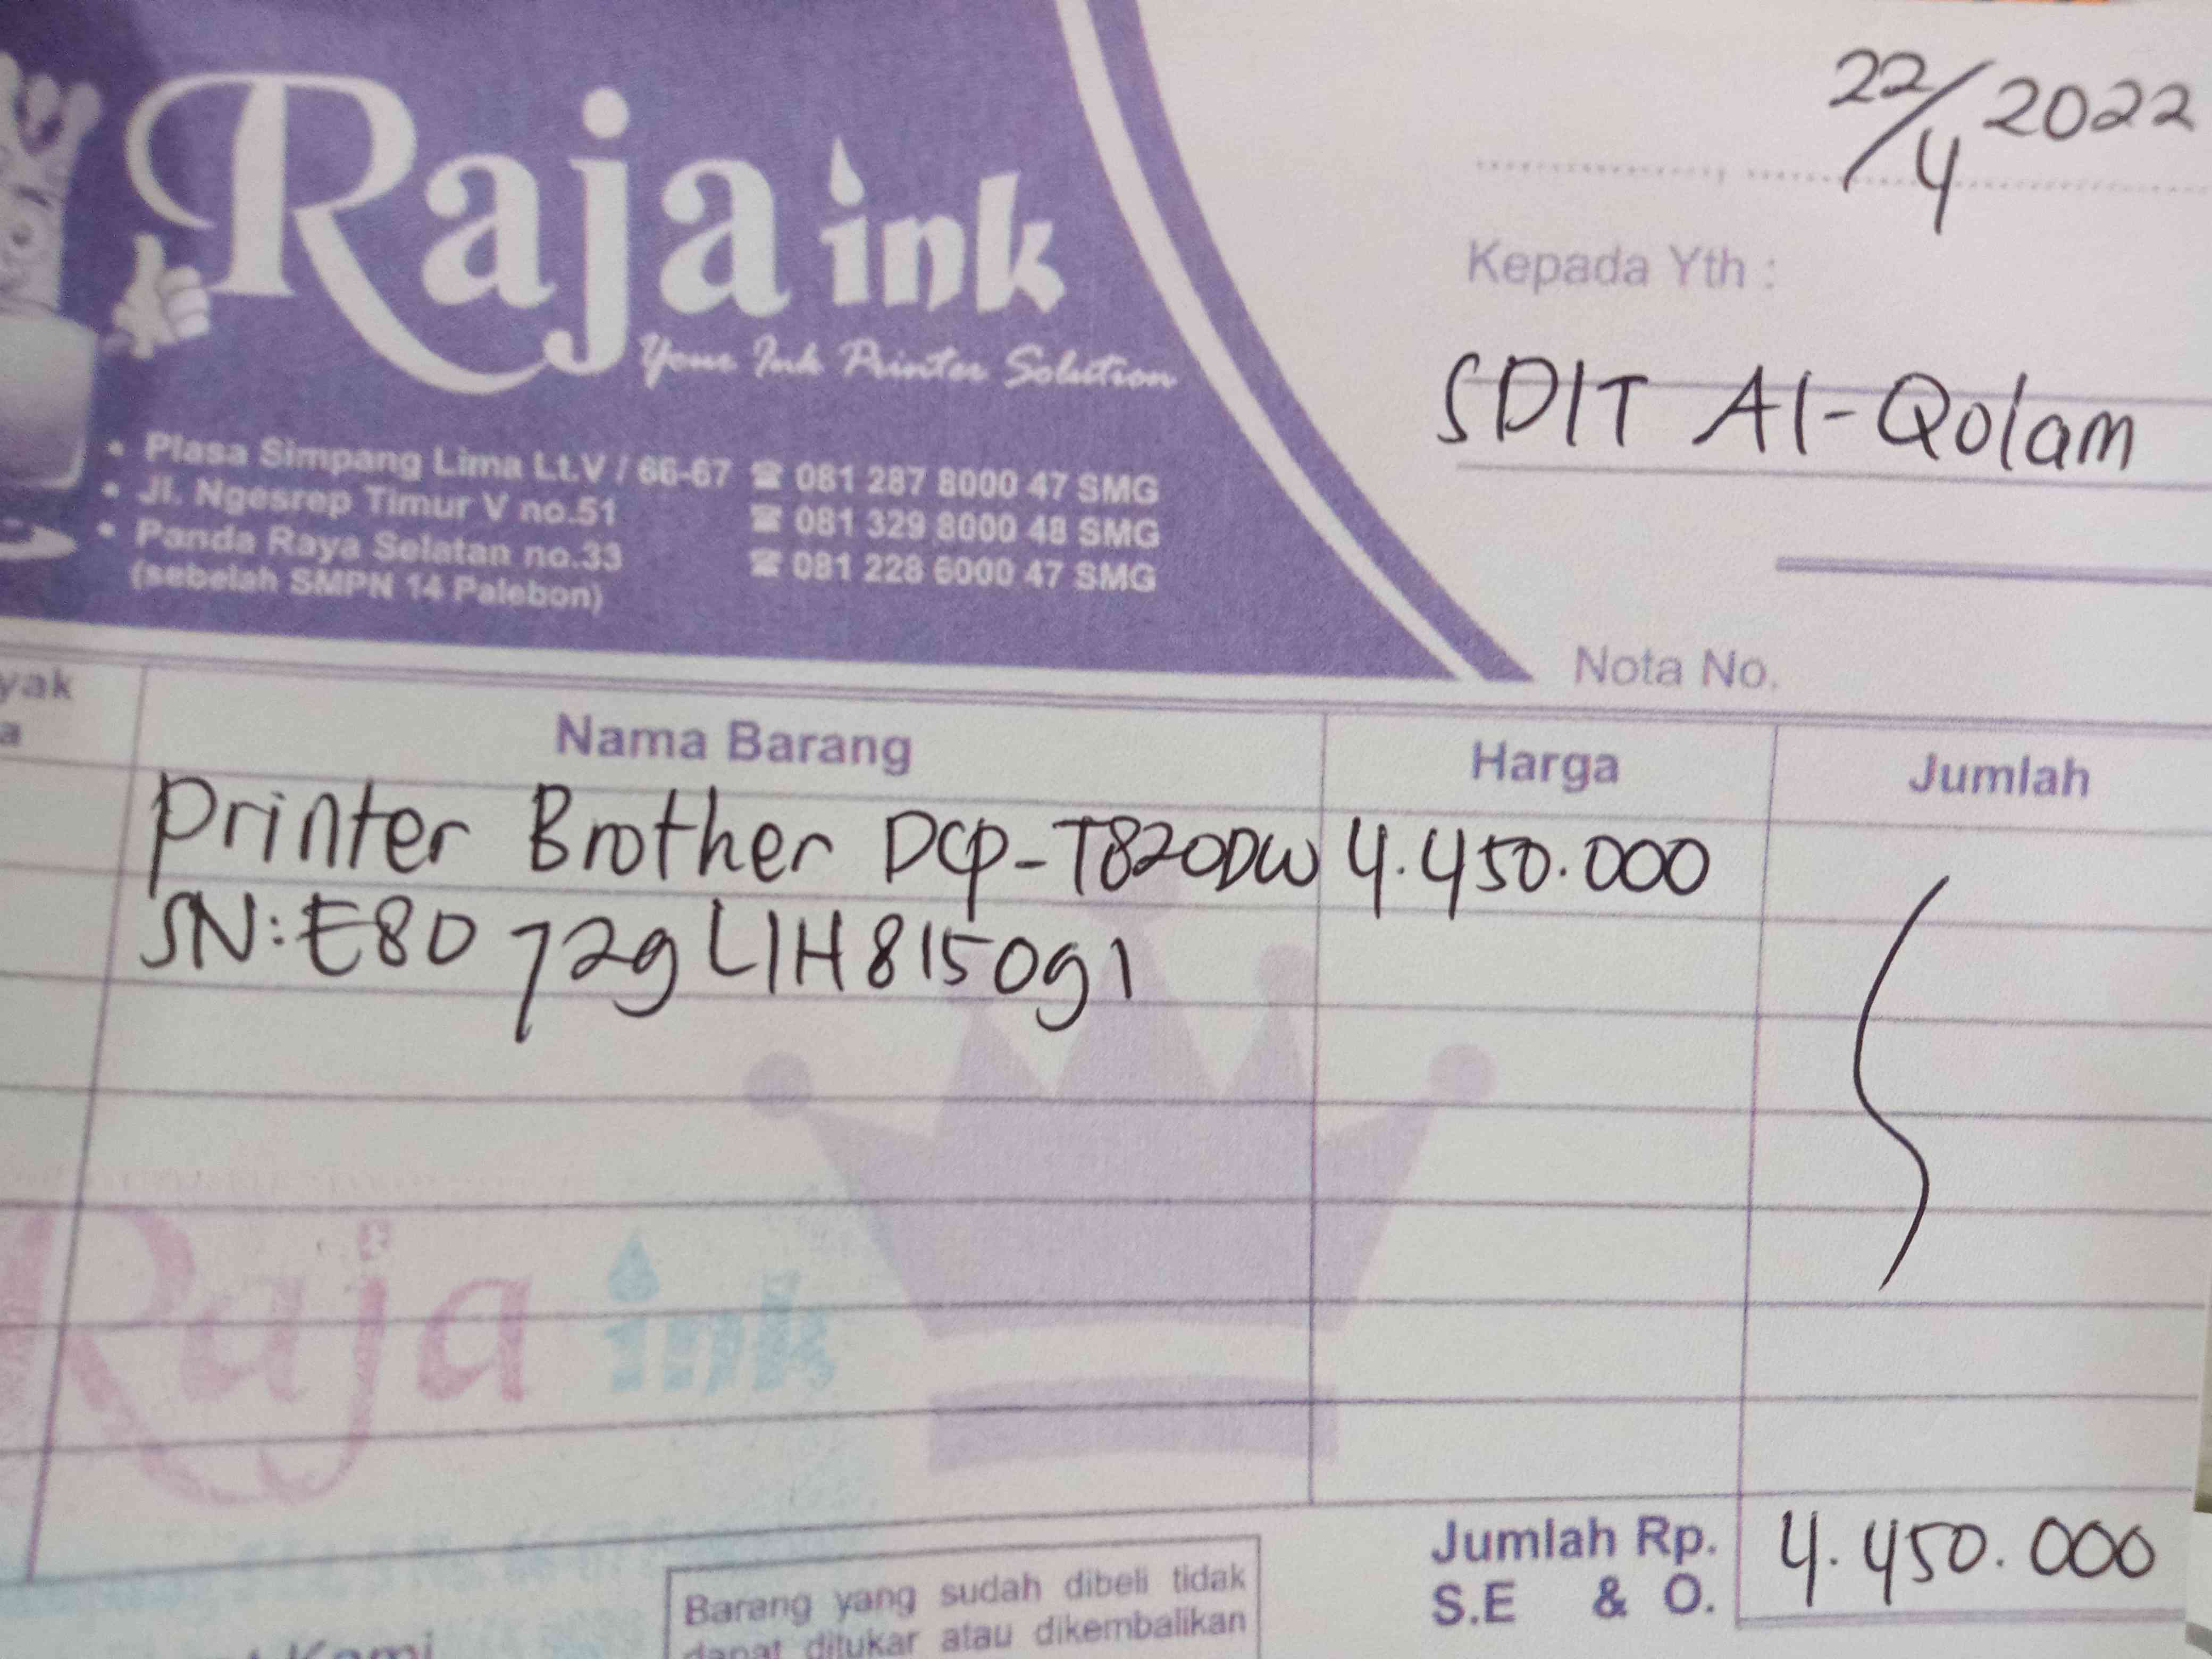 Raja ink
Your Ink Printer Solution
• Plasa Simpang Lima Lt.V / 66-67 ☎ 081 287 8000 47 SMG
• Jl. Ngesrep Timur V no.51 ☎ 081 329 8000 48 SMG
• Panda Raya Selatan no.33 ☎ 081 228 6000 47 SMG
(sebelah SMPN 14 Palebon)
22/4 2022
Kepada Yth :
SDIT Al-Qolam
Nota No.
yak
a
Nama Barang Harga Jumlah
Printer Brother DCP-T820DW 4.450.000
SN: E80 72g L1H815091
Raja ink
Jumlah Rp. 4.450.000
S.E & O.
Barang yang sudah dibeli tidak
dapat ditukar atau dikembalikan
Kami